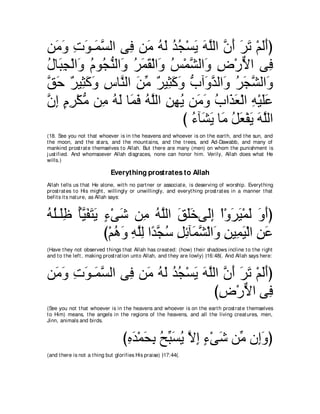 (أَلَمْ تَرَ أَنَّ اللَّهَ يَسْجُدُ لَهُ مَن فِى السَّمَـوَتِ وَمَن
فِى الاٌّرْضِ وَالشَّمْسُ وَالْقَمَرُ وَالنُّجُومُ وَالْجِبَالُ
وَالشَّجَرُ وَالدَّوَآبُّ وَكَثِيرٌ مِّنَ النَّاسِ وَكَثِيرٌ حَقَّ
عَلَيْهِ الْعَذَابُ وَمَن يُهِنِ اللَّهُ فَمَا لَهُ مِن مُّكْرِمٍ إِنَّ
اللَّهَ يَفْعَلُ مَا يَشَآءُ )
(18. See you not that whoever is in the heavens and whoever is on the earth, and the sun, and
the moon, and the stars, and the mountains, and the trees, and Ad-Dawabb, and many of
mankind prostrate themselves to Allah. But there are many (men) on whom the punishment is
justified. And whomsoever Allah disgraces, none can honor him. Verily, Allah does what He
wills.)
Everything prostrates to Allah
Allah tells us that He alone, with no partner or associate, is deserving of worship. Everything
prostrates to His might, willingly or unwillingly, and everything prostrates in a manner that
befits its nature, as Allah says:
(أَوَ لَمْ يَرَوْاْ إِلَى خَلَقَ اللَّهُ مِن شَىْءٍ يَتَفَيَّأُ ظِلَـلُهُ
عَنِ الْيَمِينِ وَالْشَّمَآئِلِ سُجَّدًا لِلَّهِ وَهُمْ)
(Have they not observed things that Allah has created: (how) their shadows incline to the right
and to the left, making prostration unto Allah, and they are lowly) (16:48). And Allah says here:
(أَلَمْ تَرَ أَنَّ اللَّهَ يَسْجُدُ لَهُ مَن فِى السَّمَـوَتِ وَمَن
فِى الاٌّرْضِ)
(See you not that whoever is in the heavens and whoever is on the earth prostrate themselves
to Him) means, the angels in the regions of the heavens, and all the living creatures, men,
Jinn, animals and birds.
(وَإِن مِّن شَىْءٍ إِلاَّ يُسَبِّحُ بِحَمْدَهِ)
(and there is not a thing but glorifies His praise) )17:44(.